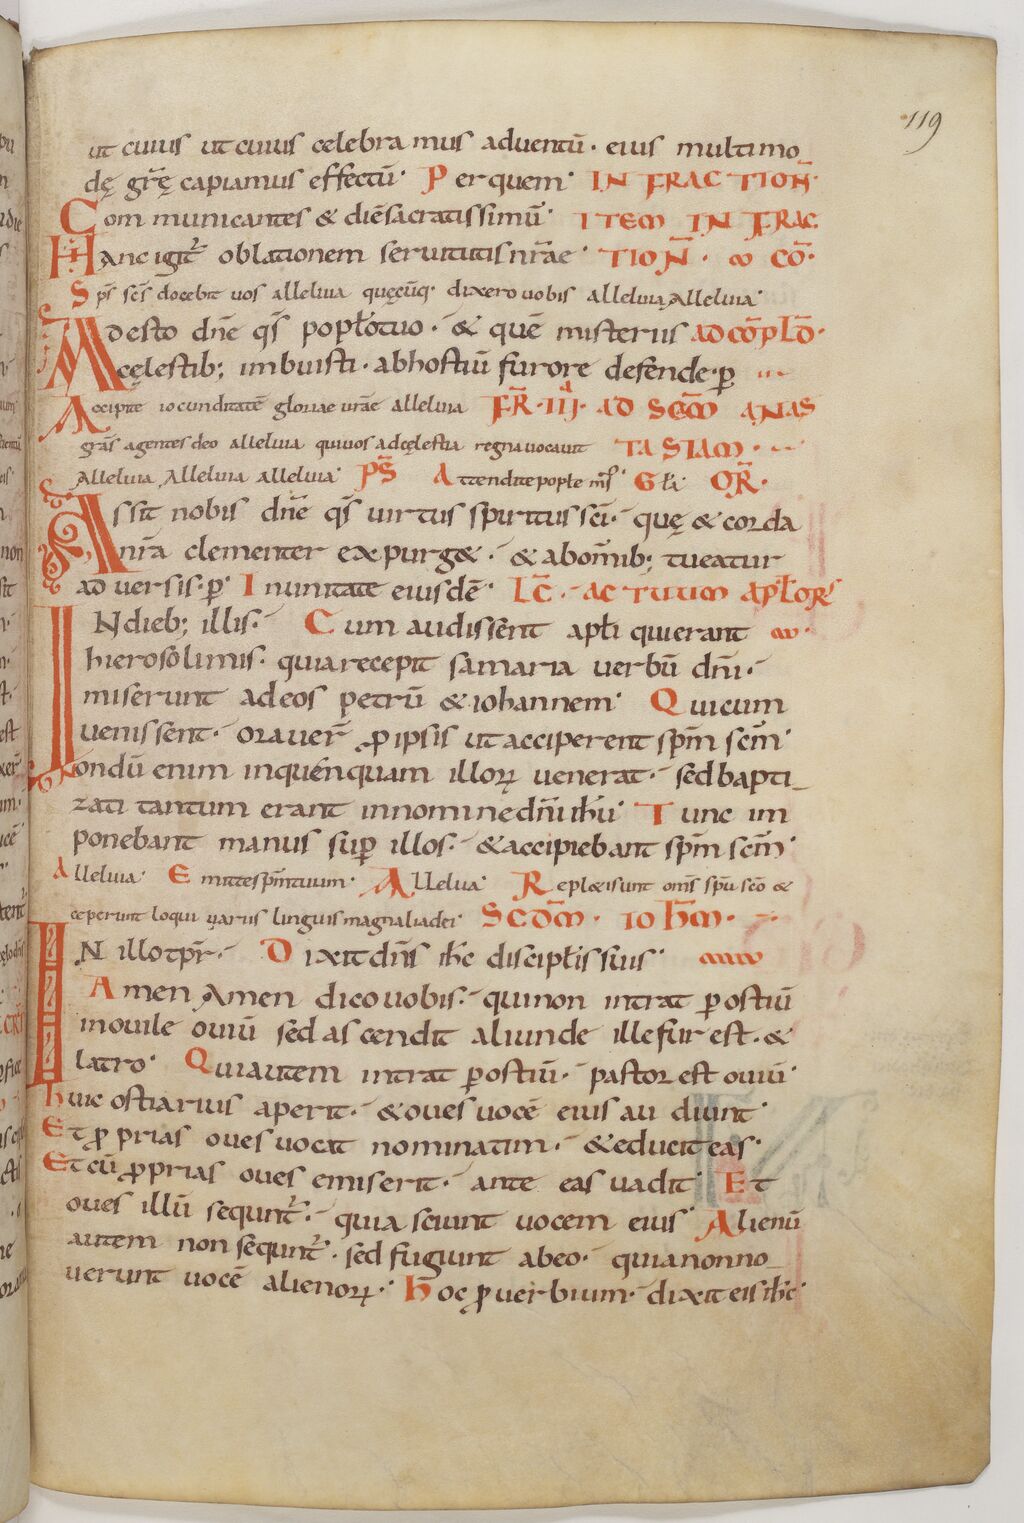 119
ut cuius ut cuius celebra mus aduentū· eius multimo
dę gr̄ę capiamus effectū· Per quem· IN FRACTION̄·
Com municantes & diēsacratissimū· ITEM IN FRAC
Hanc igit̄ oblationem seruitutis nr̄ae· TION̄· CŌ·
Sp̄s sc̄s docebit uos alleluia quęcūq· dixero uobis alleluia, Alleluia·
Adesto dn̄e qs̄ poplo tuo· & quē misteriis AD CŌPLD̄·
cęlestib; imbuisti· ab hostiū furore defende· p̄
Accipite iocunditatē gloriae ur̄ae alleluia FR̄· III· AD SC̄AM ANAS
gr̄as agentes deo alleluia qui uos ad cęlestia regna uocauit TASIAM·
Alleluia, Alleluia alleluia· PS̄ Attendite pople ms̄· Gła OR̄·
Assit nobis dn̄e qs̄ uirtus spiritus sc̄i· quę & corda
nr̄a clementer expurg&· & ab om̄ib; tueatur
aduersis· p̄· In unitate eiusdē· LC̄· ACTUUM APLOR̄
INdieb; illis· Cum audissent apłi qui erant
hierosolimis· quia recepit samaria uerbū dn̄i·
miserunt ad eos petrū & iohannem· Qui cum
uenissent· orauer̄ ꝓ ipsis ut acciperent sp̄m sc̄m·
Nondū enim inquēnquam illoꝝ uenerat· sed bapti_
zati tantum erant in nomine dn̄i ih̄u· Tunc im
ponebant manus suꝑ illos· & accipiebant sp̄m sc̄m·
Alleluia· Emitte sp̄m tuum· Allelua· Repl&i sunt om̄s sp̄u sc̄o &
ceperunt loqui uariis linguis magnalia dei· SCDM̄· IOHM̄·
IN illo tpr̄· Dixit dn̄s ih̄c discipłis suis·
Amen Amen dico uobis· qui non intrat ꝑ ostiū
in ouile ouiū sed ascendit aliunde ille fur est· &
latro· Qui autem intrat ꝑ ostiū· pastor est ouiū·
huic ostiarius aperit· & oues uocē eius au diunt·
Et ꝓprias oues uocat nominatim· & educit eas·
Et cū ꝓprias oues emiserit· ante eas uadit· Et
oues illū sequnt̄· quia sciunt uocem eius· Alienū
autem non sequnt̄· sed fugiunt ab eo· quia non no_
uerunt uocē alienoꝝ· hoc ꝓuerbium· dixit eis ih̄c·